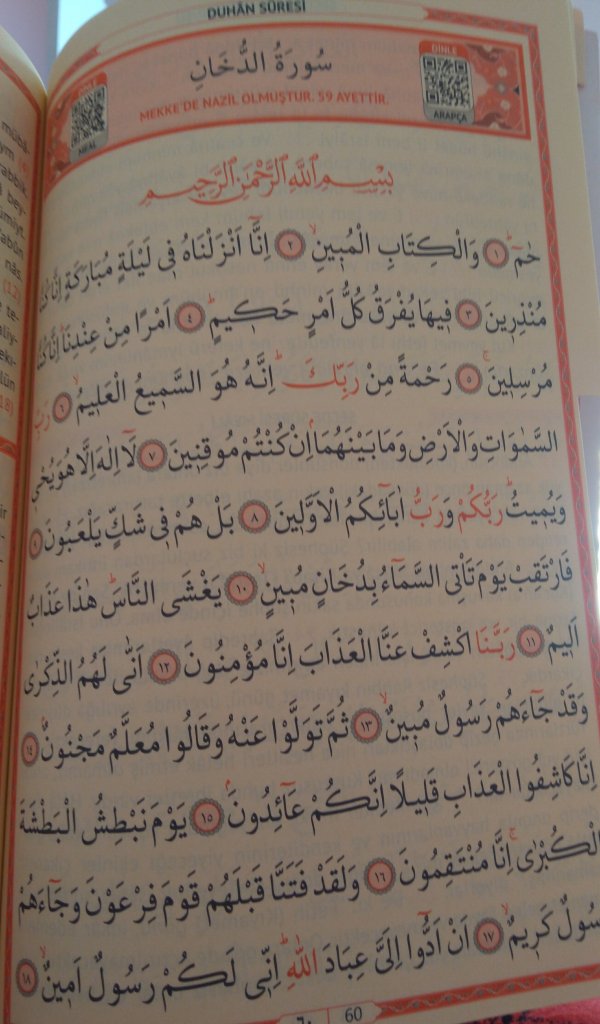 DUHÂN SÛRESİ
سُورَةُ الدُّخَانِ
DİNLE
MEKKE'DE NAZİL OLMUŞTUR. 59 AYETTİR.
MEAL
ARAPÇA
بِسْمِ اللّٰهِ الرَّحْمٰنِ الرَّحِيمِ
حٰمٓ ۚ ﴿١﴾ وَالْكِتَابِ الْمُب۪ينِۙ ﴿٢﴾ اِنَّٓا اَنْزَلْنَاهُ ف۪ي لَيْلَةٍ مُبَارَكَةٍ اِنَّا كُنَّا
مُنْذِر۪ينَ ﴿٣﴾ ف۪يهَا يُفْرَقُ كُلُّ اَمْرٍ حَك۪يمٍۜ ﴿٤﴾ اَمْرًا مِنْ عِنْدِنَاۜ اِنَّا كُنَّا
مُرْسِل۪ينَۚ ﴿٥﴾ رَحْمَةً مِنْ رَبِّكَۜ اِنَّهُ هُوَ السَّم۪يعُ الْعَل۪يمُۙ ﴿٦﴾ رَبِّ
السَّمٰوَاتِ وَالْاَرْضِ وَمَا بَيْنَهُمَاۢ اِنْ كُنْتُمْ مُوقِن۪ينَ ﴿٧﴾ لَٓا اِلٰهَ اِلَّا هُوَ يُحْي۪
وَيُم۪يتُۜ رَبُّكُمْ وَرَبُّ اٰبَٓائِكُمُ الْاَوَّل۪ينَ ﴿٨﴾ بَلْ هُمْ ف۪ي شَكٍّ يَلْعَبُونَ ﴿٩﴾
فَارْتَقِبْ يَوْمَ تَأْتِي السَّمَٓاءُ بِدُخَانٍ مُب۪ينٍۙ ﴿١٠﴾ يَغْشَى النَّاسَۜ هٰذَا عَذَابٌ
اَل۪يمٌ ﴿١١﴾ رَبَّنَا اكْشِفْ عَنَّا الْعَذَابَ اِنَّا مُؤْمِنُونَ ﴿١٢﴾ اَنّٰى لَهُمُ الذِّكْرٰى
وَقَدْ جَٓاءَهُمْ رَسُولٌ مُب۪ينٌۙ ﴿١٣﴾ ثُمَّ تَوَلَّوْا عَنْهُ وَقَالُوا مُعَلَّمٌ مَجْنُونٌۢ ﴿١٤﴾
اِنَّا كَاشِفُوا الْعَذَابِ قَل۪يلًا اِنَّكُمْ عَٓائِدُونَۢ ﴿١٥﴾ يَوْمَ نَبْطِشُ الْبَطْشَةَ
الْكُبْرٰىۚ اِنَّا مُنْتَقِمُونَ ﴿١٦﴾ وَلَقَدْ فَتَنَّا قَبْلَهُمْ قَوْمَ فِرْعَوْنَ وَجَٓاءَهُمْ
رَسُولٌ كَر۪يمٌۙ ﴿١٧﴾ اَنْ اَدُّٓوا اِلَيَّ عِبَادَ اللّٰهِۜ اِنّ۪ي لَكُمْ رَسُولٌ اَم۪ينٌۙ ﴿١٨﴾
٦٠ 60